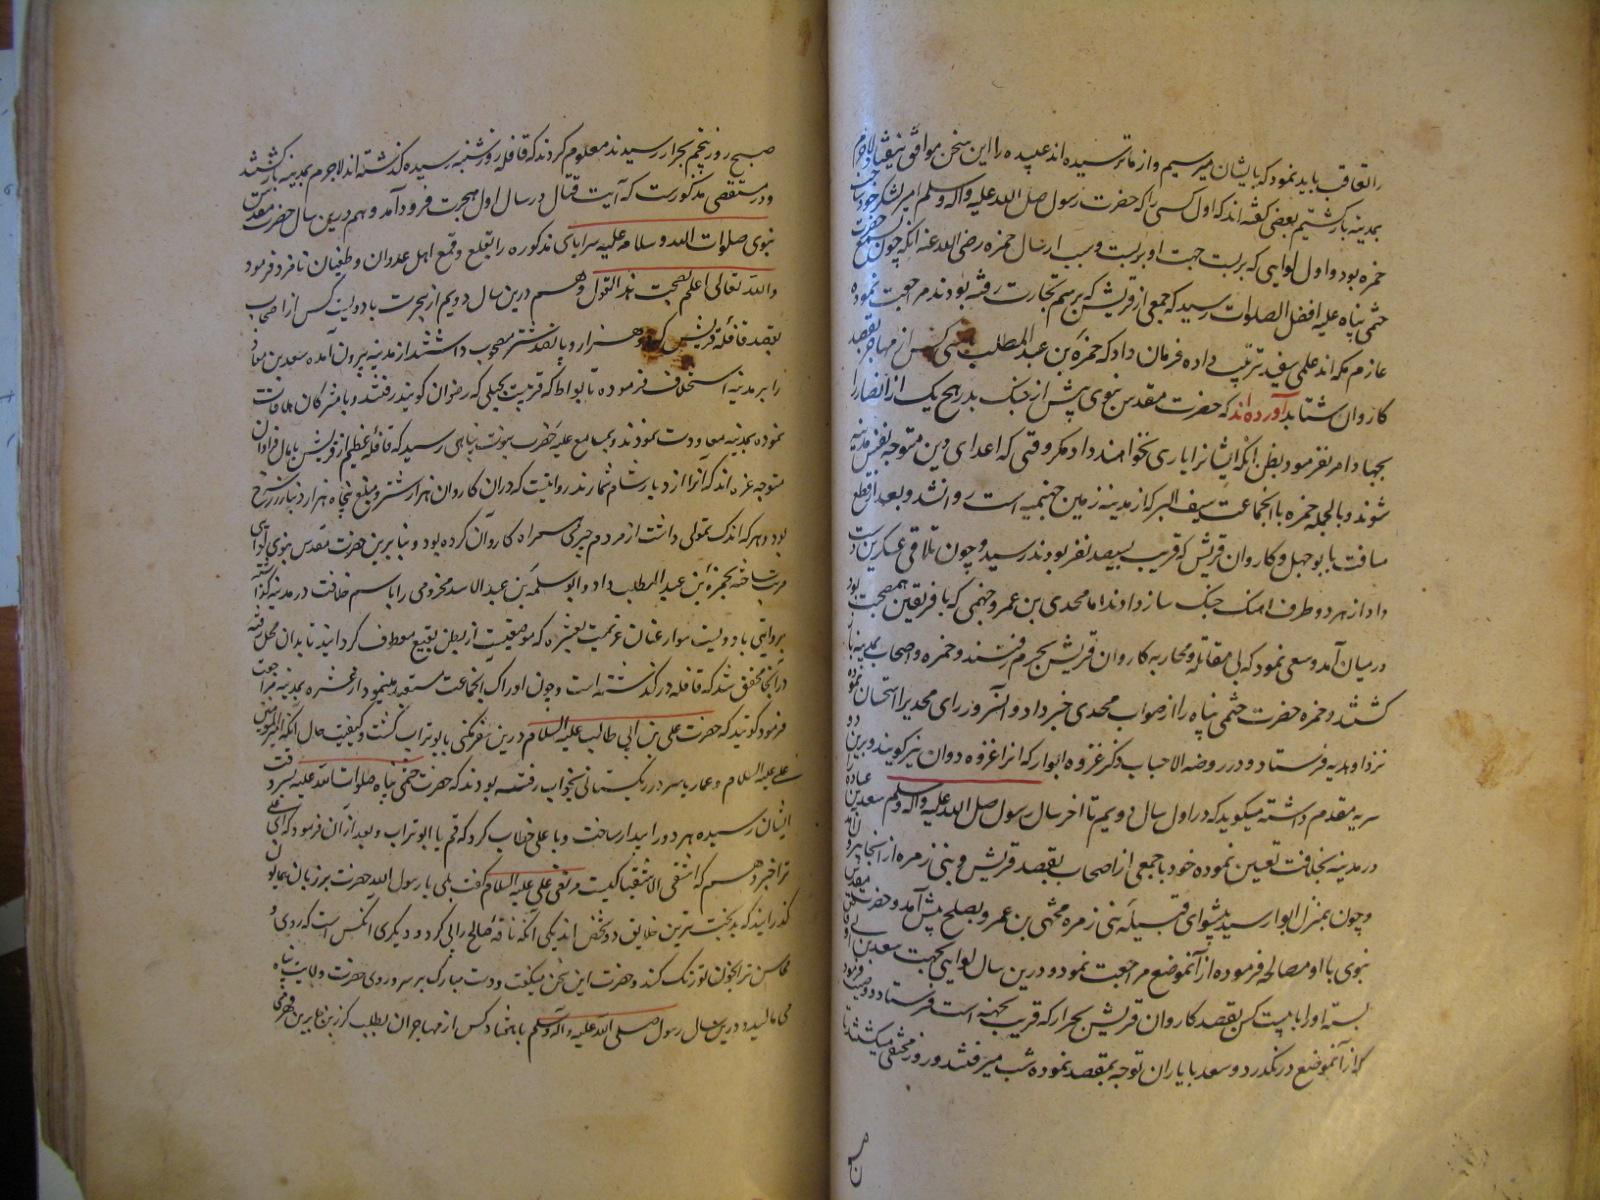 را تعاقب باید نمود که بایشان میرسیم و از ما نترسیده اند عبیده را این سخن موافق نیفتاد لاجرم
بمدینه بازگشتیم بعضی گفته اند که اول کسی را که حضرت رسول صلی الله علیه و اله وسلم امیر لشکر خود ساخت
حمزه بود و اول لوایی که بربست جهت او بربست و سبب ارسال حمزه رضی الله عنه آنکه چون حضرت
ختمی پناه علیه افضل الصلوات رسید که جمعی از قریش که برسم تجارت رفته بودند مراجعت نموده
عازم مکه اند علمی سفید ترتیب داده فرمان داد که حمزه بن عبد المطلب کس از مهاجر بقصد
کاروان شتابد آورده اند که حضرت مقدس نبوی پیش از جنک بدر هیچ یک از انصار را
بجهاد امر نفرمود بظن آنکه ایشان را یاری نخواهند داد مکر وقتی که اعدای دین متوجه نفس مدینه
شوند و بالجمله حمزه با انجماعت بسیف البحر که از مدینه زمین جهنیه است روانشد و بعد از قطع
مسافت با بوجهل و کاروان قریش که قریب بسیصد نفر بودند رسید و چون تلاقی عسکرین دست
داد از هر دو طرف اهنک جنک ساز دادند اما مجدی بن عمرو جهنی که با فریقین هم صحبت بود
درمیان آمد و سعی نمود که بی مقاتله و محاربه کاروان قریش بحرم رفتند و حمزه و اصحاب بمدینه باز
کشتند و حمزه حضرت ختمی پناه را از صواب مجدی خبر داد و آنسرور رای مجدی را استحسان نموده
نزد او هدیه فرستاد و در روضه الاحباب ذکر غزوه ابوا را که انرا غزوه دوان نیز کویند و برین دو
سریه مقدم داشته میکوید که در اول سال دویم تا اخر سال رسول صلی الله علیه و اله وسلم سعد بن عباده را
در مدینه بخلافت تعیین نموده خود با جمعی از اصحاب بقصد قریش و بنی زمره از انجا بیرون
و چون بمنزل ابوا رسید پیشوای قبیله بنی زمره مخشی بن عمرو بصلح پیش آمد و حضرت مقدس
نبوی با او مصالحه فرموده از آنموضع مراجعت نمود و درین سال لوایی بجهت سعد بن ابی وقاص
بسته او را با بیست کس بقصد کاروان قریش بحرار که قریب بجحفه است فرستاد و وصیت فرمود
که از آنموضع در نکذرد و سعد با یاران توجه بمقصد نموده شب میرفتند و روز مختفی میکشتند تا
صبح روز پنجم بحرار رسیدند معلوم کردند که قافله روز شنبه رسیده گذشته اند لاجرم بمدینه بازکشتند
و در مستقصی مذکورست که آیت قتال در سال اول هجرت فرود آمد و هم درین سال حضرت مقدس
نبوی صلوات الله و سلامه علیه سرایای مذکوره را بقلع و قمع اهل عدوان و طغیان نامزد فرمود
والله تعالی اعلم بصحت هذا القول و هم درین سال دویم از هجرت با دویست کس از اصحاب
بقصد قافله قریش که دو هزار و پانصد شتر مصحوب داشتند از مدینه بیرون آمده سعد بن معاذ
را بر مدینه استخلاف فرموده تا بواط که قریب بجبلی که رضوان کویند رفتند و با مشرکان ملاقات
نموده بمدینه معاودت نمودند و بمسامع علیه حضرت نبوت پناهی رسید که قافله عظیم از قریش با مال فراوان
متوجه غزه اند که آنرا از دیار شام شمارند روایتست که دران کاروان هزار شتر و مبلغ پنجاه هزار دینار زر سرخ
بود و هر که اندک تمولی داشت از مردم چیزی همراه کاروان کرده بود و بنابرین حضرت مقدس نبوی لوای
مرتب ساخته بحمزه بن عبد المطلب داد و ابوسلمه بن عبد الاسد مخزومی را باسم خلافت در مدینه کذاشته
بروایتی با دویست سوار عنان عزیمت بعشیره که موضعیست از بطن بقیع معطوف کردانید تا بدان محل رفته
در آنجا تحقق شد که قافله در گذشته است و چون ادراک انجماعت مستبعد مینمود از عشیره بمدینه مراجعت
فرمود کویند که حضرت علی بن ابی طالب علیه السلام درین سفر مکنی بابو تراب کشت و کیفیت حال آنکه امیر المؤمنین
علی علیه السلام و عمار یاسر در ریکستانی بخواب رفته بودند که حضرت ختمی پناه صلوات الله علیه بسر وقت
ایشان رسیده هر دو را بیدار ساخت و با علی خطاب کرد که قم یا ابو تراب و بعد از آن فرمود که ای علی
ترا خبر دهم که اشقی الاشقیا کیست مرتضی علی علیه السلام گفت بلی یا رسول الله حضرت بر زبان همایون
کذرانید که بدبخت ترین خلایق دو شخص اند یکی آنکه ناقه صالح را پی کرد و دیکری آنکس است که روی و
محاسن ترا بخون تو رنک کند و حضرت این سخن میکفت و دست مبارک بر سر و روی حضرت ولایت پناه
می مالید و درین سال رسول صلی الله علیه و آله وسلم با هشتاد کس از مهاجران بطلب کرز بن جابر بن فهری